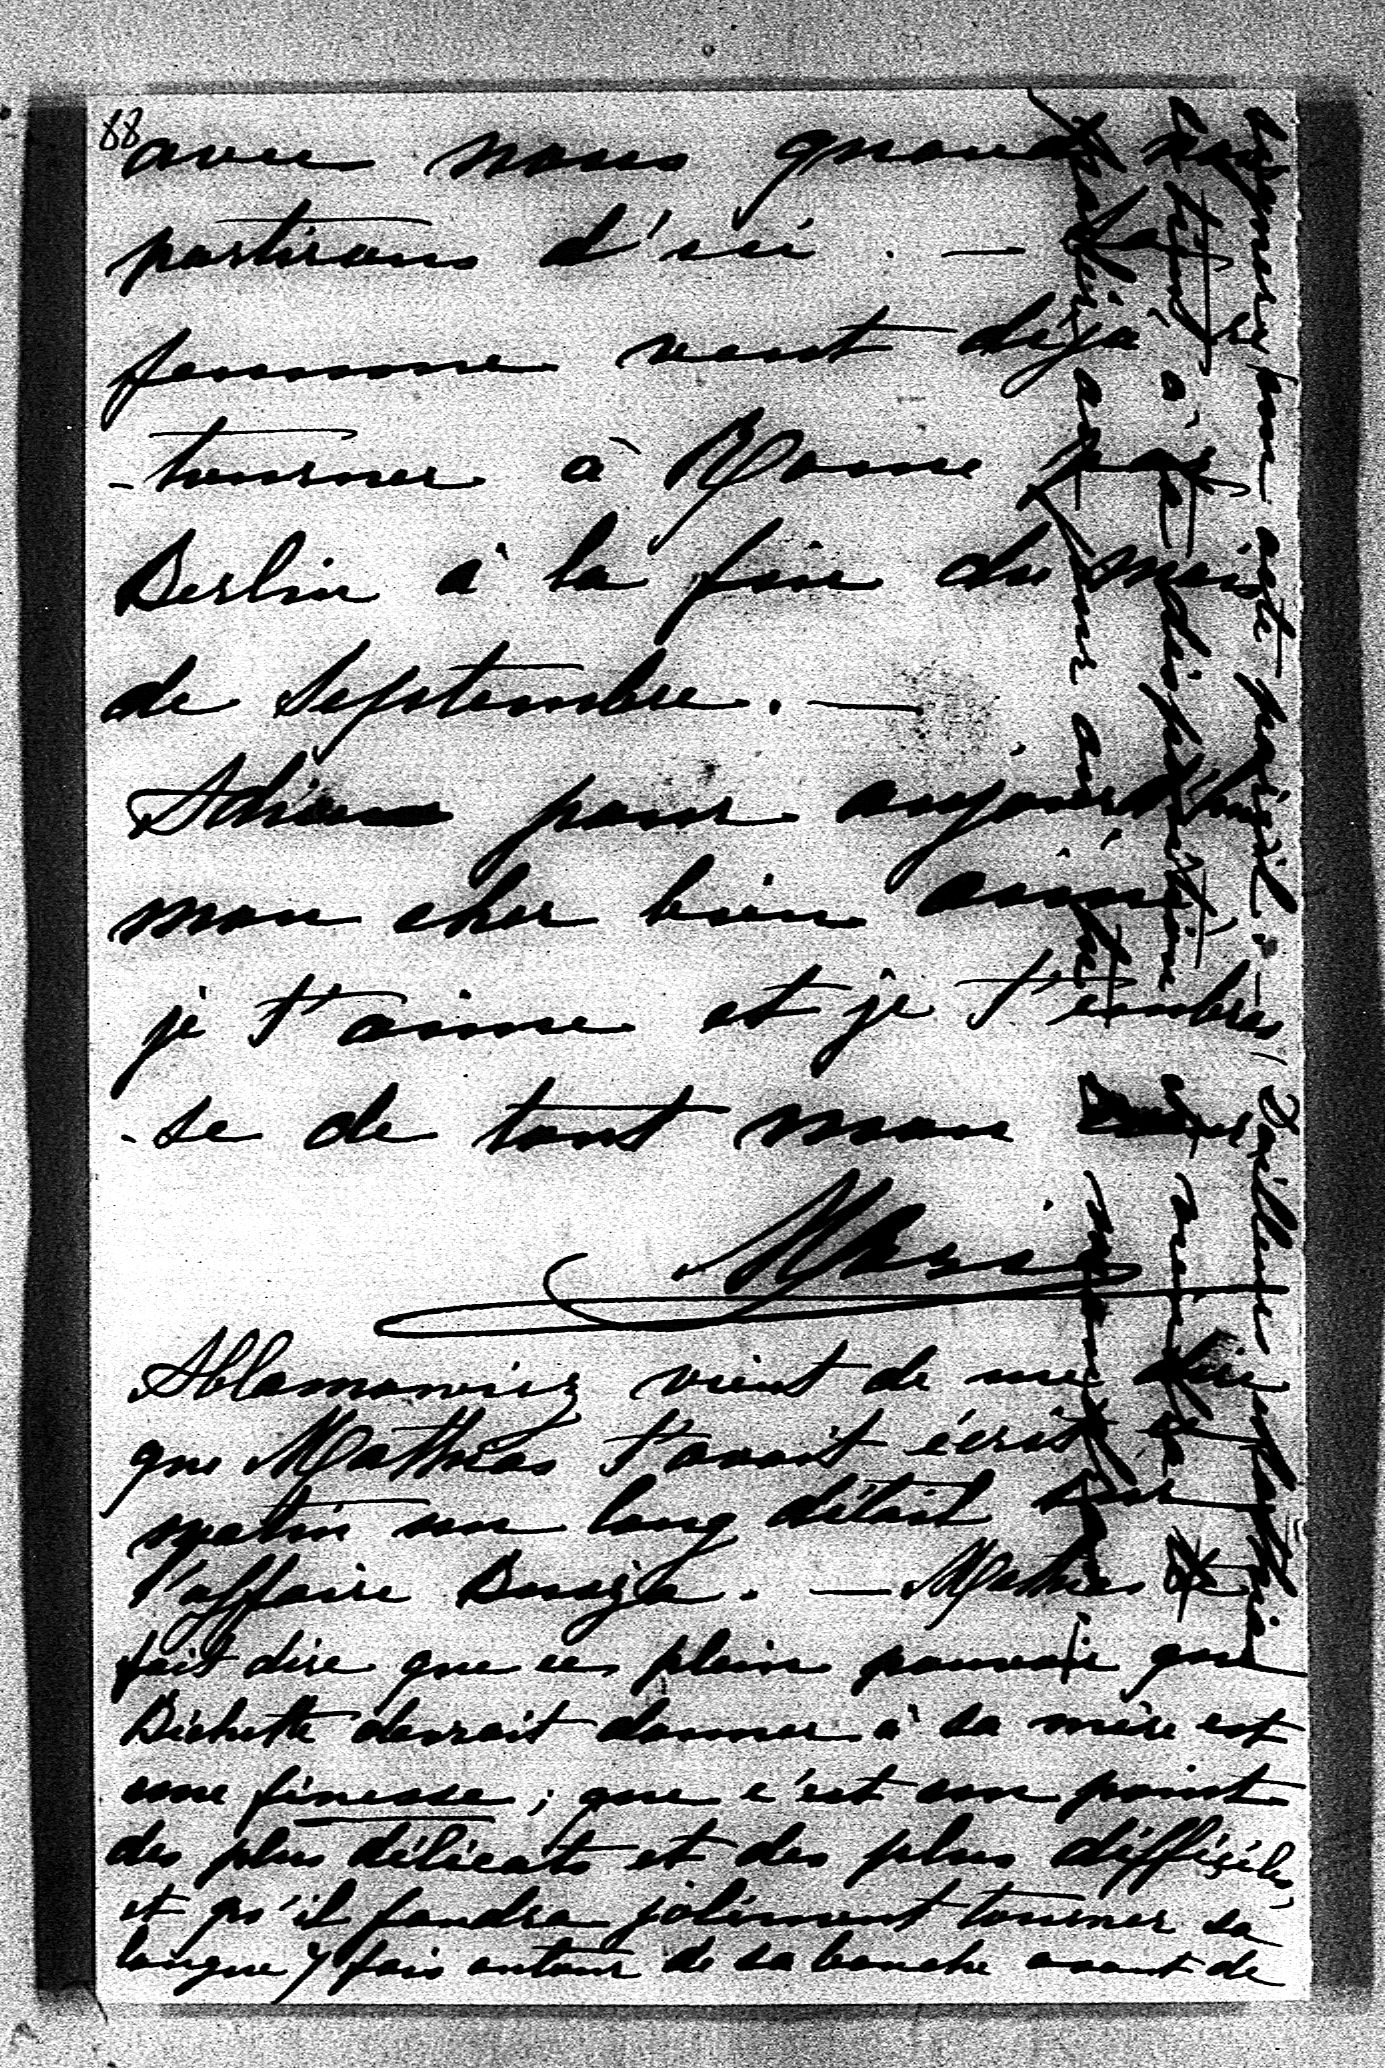 88
avec nous quand nous
partirons d'ici. — Sa
femme veut déjà re
-tourner à Rome par
Berlin à la fin du mois
de Septembre. —
Adieu pour aujourd'hui
mon cher bien aimé
je t'aime et je t'embras
-se de tout mon cœur
Marie
Ablamowicz vient de me dire
que Mathias t'avait écrit ce
matin un long détail sur
l'affaire Dusija. — Mathias te
fait dire que ces plein pouvoir que
Bichette devrait donner à sa mère est
une finesse; que c'est un point
des plus délicats et des plus difficiles,
et qu'il faudra joliment tourner sa
langue 7 fois autour de sa bouche avant de
signer un acte pareil. — D'ailleurs Mathias
à ta disposition
établir